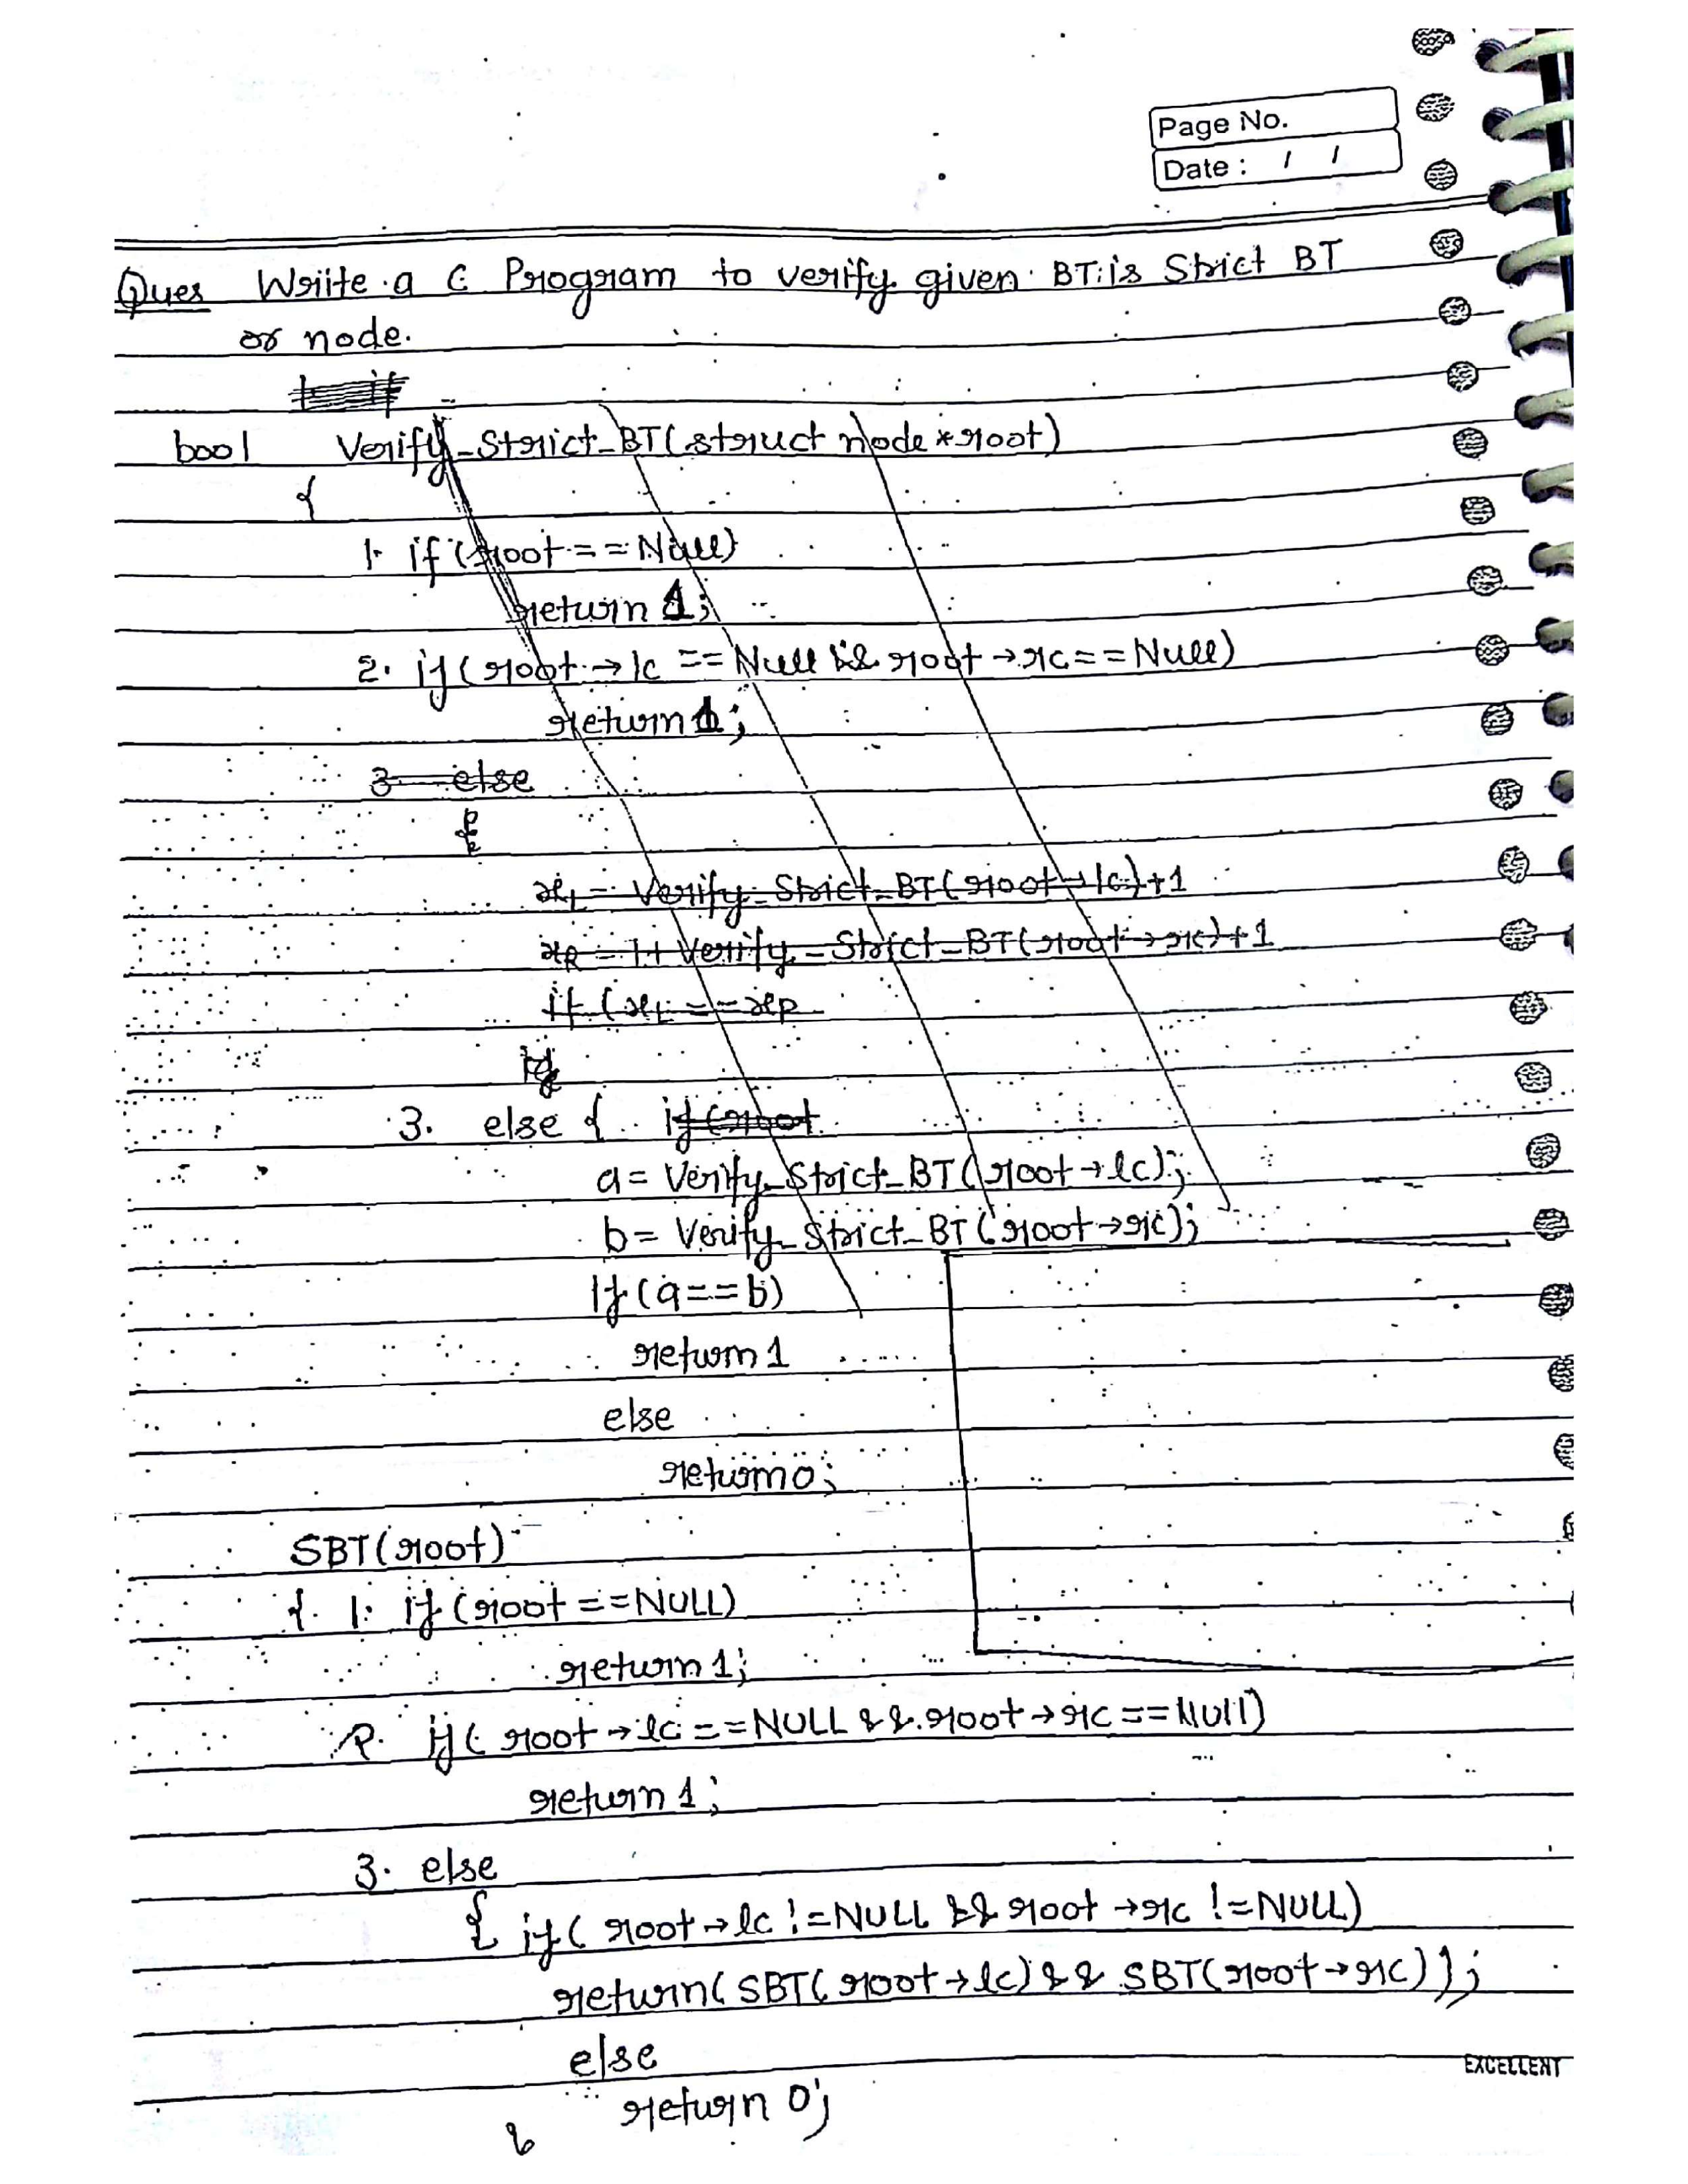 Page No.
Date : / /
Ques Write a C Program to verify given BT is Strict BT
or node.
bool Verify_Strict_BT(struct node *root)
{
1. if (root == Null)
return 1;
2. if (root → lc == Null && root → rc == Null)
return 1;
3. else
{
xL = Verify_Strict_BT(root → lc) + 1
xR = 1 + Verify_Strict_BT(root → rc) + 1
if (xL == xR
3. else { if (root
a = Verify_Strict_BT(root → lc);
b = Verify_Strict_BT(root → rc);
If (a == b)
return 1
else
return 0;
SBT(root)
{ 1. if (root == NULL)
return 1;
2. if ( root → lc == NULL && root → rc == Null)
return 1;
3. else
{ if ( root → lc != NULL && root → rc != NULL)
return( SBT( root → lc) && SBT( root → rc));
else
return 0;
}
EXCELLENT